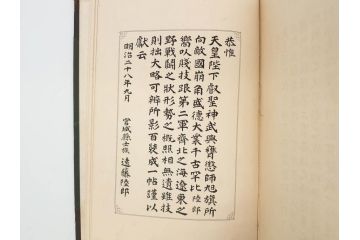 恭惟
天皇陛下叡聖神武興膺懲師旭旗所
向敵國崩角盛德大業千古罕比陸郎
嚮以賤技跟第二軍齊北之海遼東之
野戰鬪之狀形勢之概照相無遺雖技
則拙大略可辨所影百成一帖謹以
獻云
明治二十八年九月
宮城縣士族 遠藤陸郎